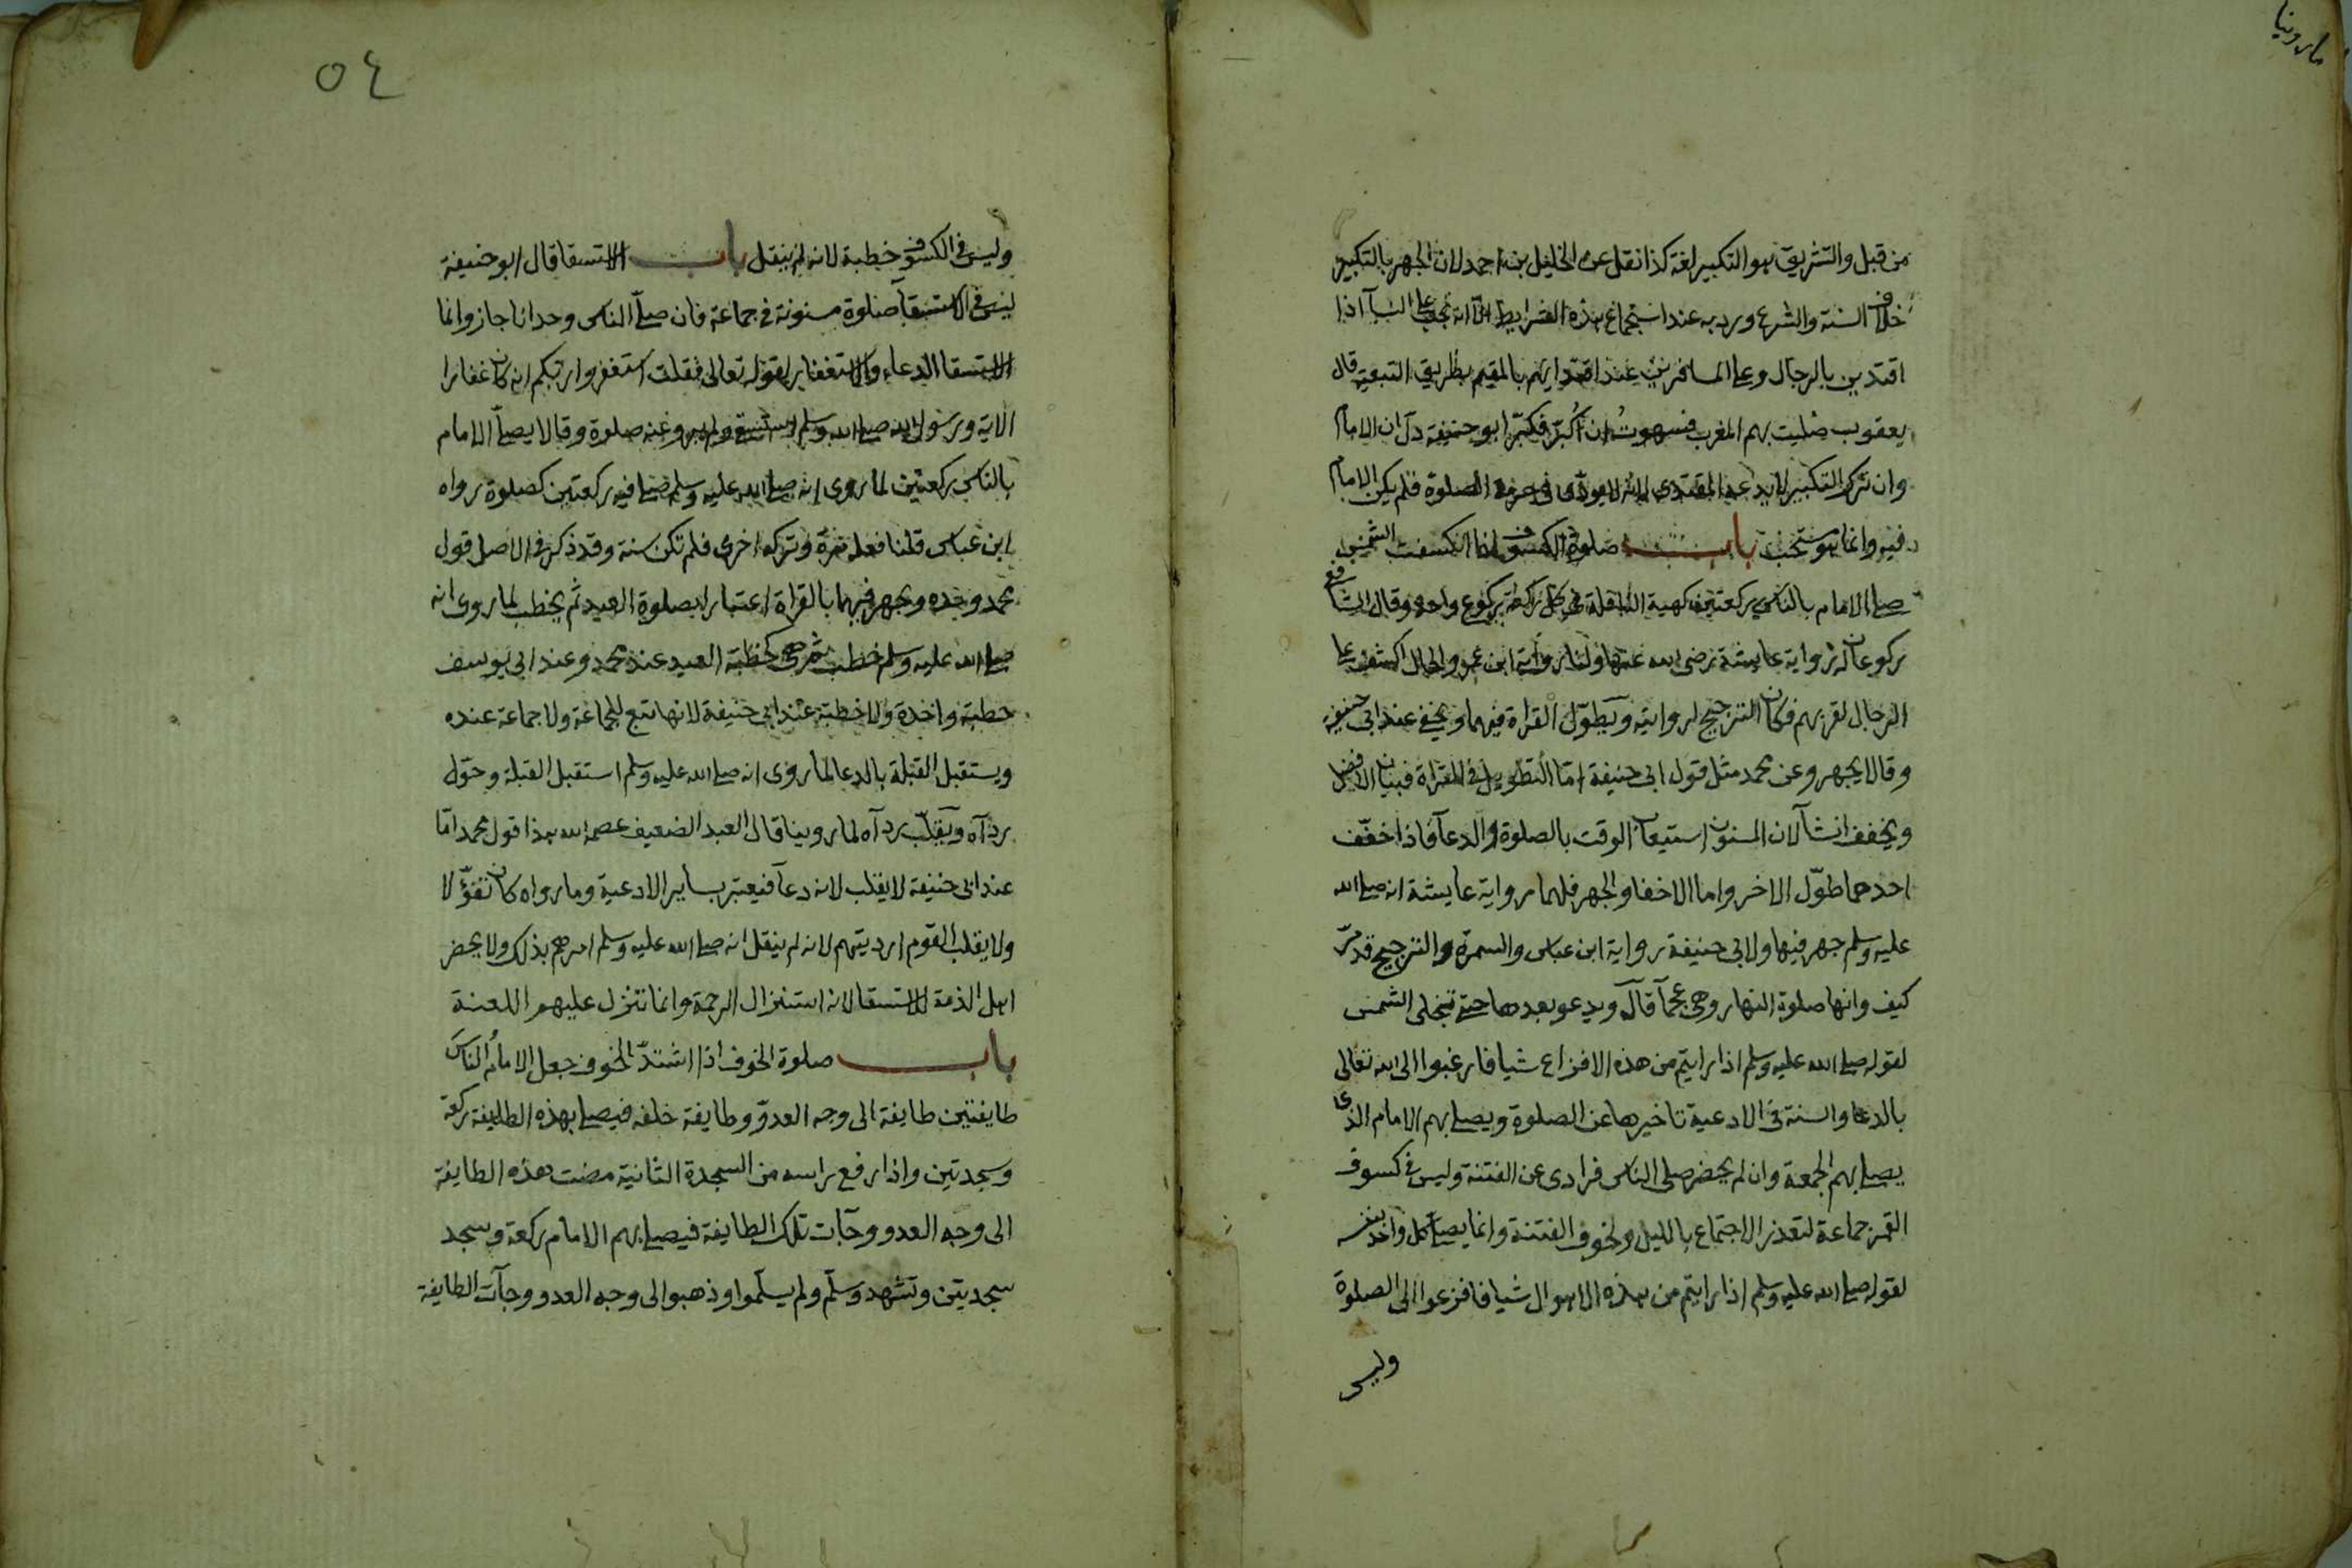 ما روينا
من قبل والتشريق هو التكبير لغة كذا نقل عن الخليل بن احمد لان الجهر بالتكبير
خلاف السنة والشرع ورد به عند استجماع هذه الشرايط الا انه يجب على النسآ اذا
اقتدين بالرجال وعلى المسافرين عند اقتدايهم بالمقيم بطريق التبعية قال
يعقوب صليت بهم المغرب فسهوت ان اكبر فكبر ابو حنيفة دل ان الامام
وان ترك التكبير لا يدعه المقتدى لانه لا يودى فى حرمة الصلوة فلم يكن الامام
فيه وانما هو مستحب باب صلوة الكسوف اذا انكسفت الشمس
صلى الامام بالناس ركعتين كهية النافلة فى كل ركعة ركوع واحد وقال الشافعى
ركوعان له رواية عايشة رضى الله عنها ولنا رواية ابن عمر والحال اكشف على
الرجال لقربهم فكان الترجيح لروايته ويطول القراة فيهما ويخفى عند ابى حنيفه
وقالا يجهر وعن محمد مثل قول ابى حنيفة اما التطويل فى القراة فبيان الافضل
ويخفف ان شآ لان المسنون استيعاب الوقت بالصلوة والدعآ فاذا خفف
احدهما طول الاخر واما الاخفا والجهر فلهما رواية عايشة انه صلى الله
عليه وسلم جهر فيها ولابى حنيفة رواية ابن عباس والسمرة والترجيح قد مر
كيف وانها صلوة النهار وهى عجمآ قال ويدعو بعدها حتى تنجلى الشمس
لقوله صلى الله عليه وسلم اذا رايتم من هذه الافزاع شيا فارغبوا الى الله تعالى
بالدعا والسنة فى الادعية تاخيرها عن الصلوة ويصلى بهم الامام الذى
يصلى بهم الجمعة وان لم يحضر صلى الناس فرادى عن الفتنة وليس فى كسوف
القمر جماعة لتعذر الاجتماع بالليل ولخوف الفتنة وانما يصلى كل واحد بنفسه
لقوله صلى الله عليه وسلم اذا رايتم من هذه الاهوال شيا فافزعوا الى الصلوة
وليس
٥٤
وليس فى الكسوف خطبة لانه لم ينقل باب الاستسقا قال ابو حنيفة
ليس فى الاستسقآ صلوة مسنونة فى جماعة فان صلى الناس وحدانا جاز وانما
الاستسقا الدعاء والاستغفار لقوله تعالى فقلت استغفروا ربكم انه كان غفارا
الاية ورسول الله صلى الله وسلم استسقى ولم يرو عنه صلوة وقالا يصلى الامام
بالناس ركعتين لما روى انه صلى الله عليه وسلم صلى فيه ركعتين كصلوة رواه
ابن عباس قلنا فعله مرة وتركه اخرى فلم تكن سنة وقد ذكر فى الاصل قول
محمد وحده ويجهر فيهما بالقراة اعتبارا بصلوة العيد ثم يخطب لما روى انه
صلى الله عليه وسلم خطب ثم هى كخطبة العيد عند محمد وعند ابى يوسف
خطبة واحدة ولا خطبة عند ابى حنيفة لانها تبع للجماعة ولا جماعة عنده
ويستقبل القبلة بالدعا لما روى انه صلى الله عليه وسلم استقبل القبلة وحول
ردآه ويقلب ردآه لما روينا قال العبد الضعيف عصمه الله هذا قول محمد اما
عند ابى حنيفة لا يقلب لانه دعآ فيعتبر بساير الادعية وما رواه كان تفولا
ولا يقلب القوم ارديتهم لانه لم ينقل انه صلى الله عليه وسلم امرهم بذلك ولا يحضر
اهل الذمة الاستسقا لانه استنزال الرحمة وانما تنزل عليهم اللعنة
باب صلوة الخوف اذا اشتد الخوف جعل الامام الناس
طايفتين طايفة الى وجه العدو وطايفة خلفه فيصلى بهذه الطايفة ركعة
وسجدتين واذا رفع راسه من السجدة الثانية مضت هذه الطايفة
الى وجه العدو وجآت تلك الطايفة فيصلى بهم الامام ركعة وسجد
سجديتن وتشهد وسلم ولم يسلموا وذهبوا الى وجه العدو وجآت الطايفة